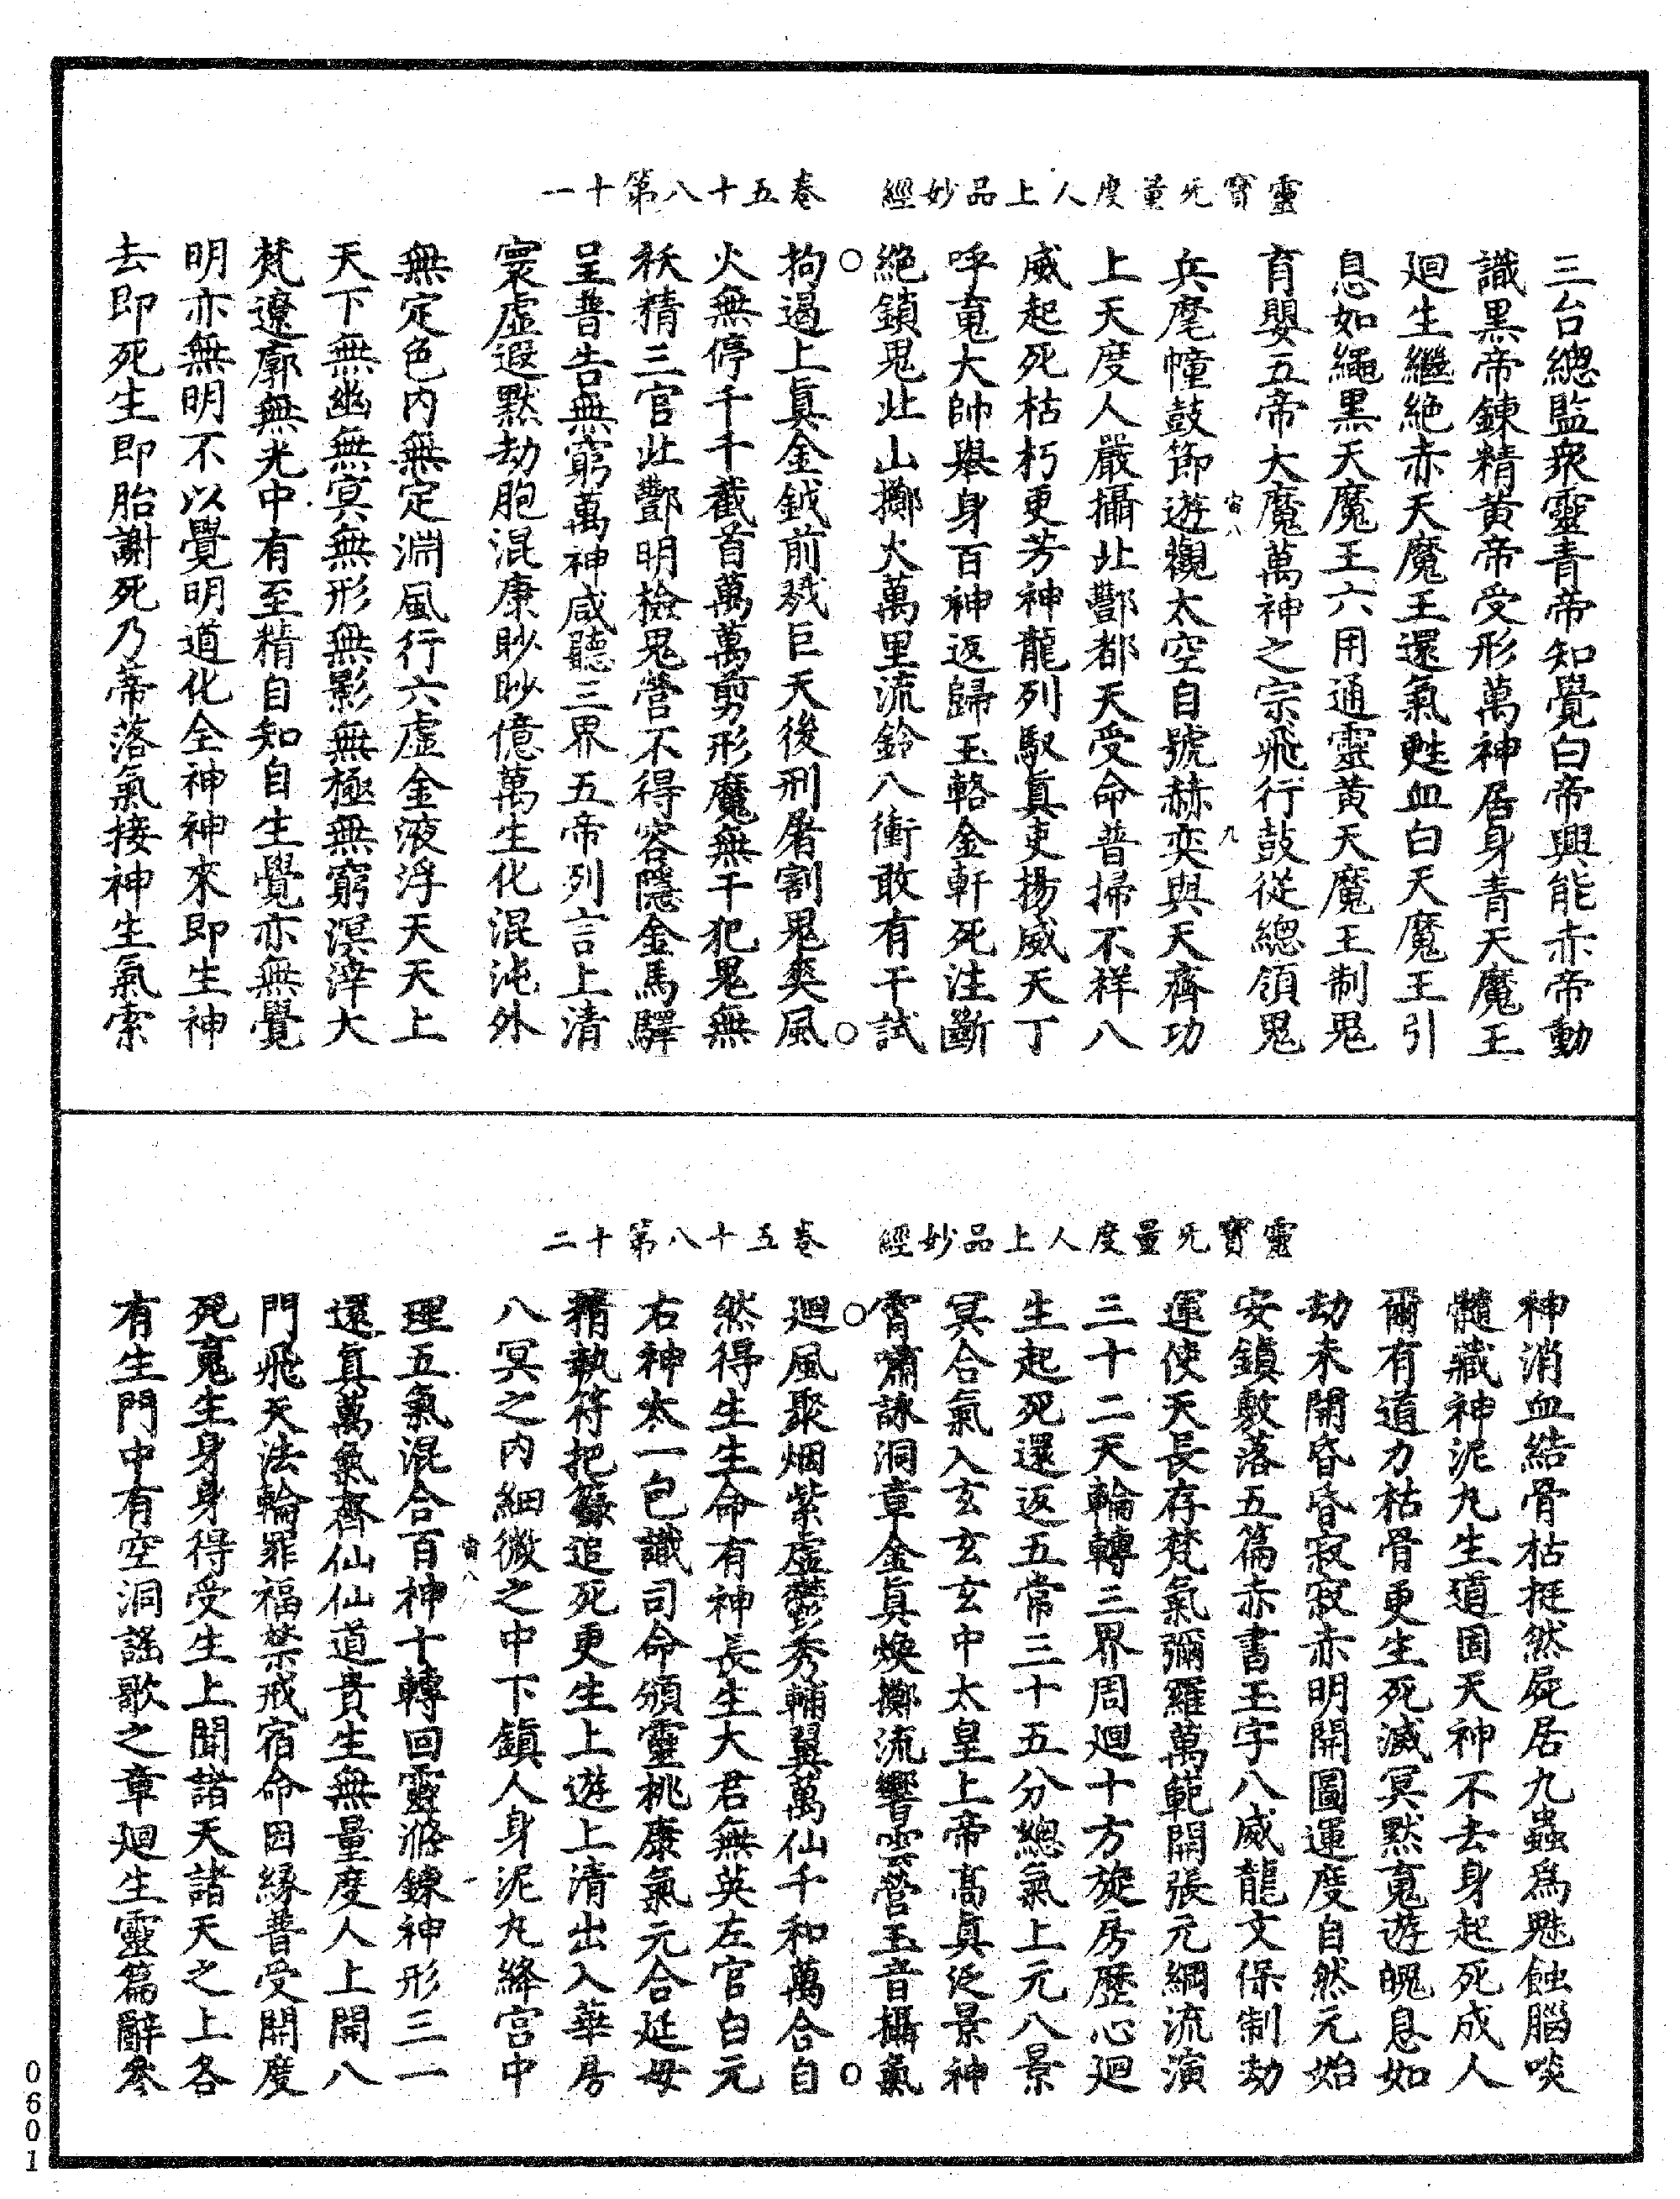 靈寶无量度人上品妙經　卷五十八第十一
三台總監衆靈青帝知覺白帝興能赤帝動
識黑帝鍊精黃帝受形萬神居身青天魔王
廻生繼絶赤天魔王還氣甦血白天魔王引
息如繩黑天魔王六用通靈黃天魔王制鬼
育嬰五帝大魔萬神之宗飛行鼓從總領鬼
宙八　九
兵麾幢鼓節遊觀太空自號赫奕與天齊功
上天度人嚴攝北酆都天受命普掃不祥八
威起死枯朽更芳神龍列馭真吏揚威天丁
呼䰟大帥舉身百神返歸玉輅金軒死注斷
絶鎖鬼北山擲火萬里流鈴八衝敢有干試
拘遏上眞金鉞前戮巨天後刑屠割鬼爽風
火無停千千截首萬萬剪形魔無干犯鬼無
祅精三官北酆明檢鬼營不得容隱金馬驛
呈普告無窮萬神咸聽三界五帝列言上清
寥虛遐默劫胞混康眇眇億萬生化混沌外
無定色内無定淵風行六虛金液浮天天上
天下無幽無冥無形無影無極無窮溟涬大
梵遼廓無光中有至精自知自生覺亦無覺
明亦無明不以覺明道化全神神來即生神
去即死生即胎謝死乃蒂落氣接神生氣索
靈寶无量度人上品妙經　卷五十八第十二
神消血結骨枯挺然屍居九蟲爲魅蝕腦啖
髓藏神泥九生道固天神不去身起死成人
爾有道力枯骨更生死滅冥默䰟遊魄息如
劫未開昏昏寂寂赤明開圖運度自然元始
安鎮敷落五篇赤書玉字八威龍文保制劫
運使天長存梵氣彌羅萬範開張元綱流演
三十二天輪轉三界周廻十方旋房歷心廻
生起死還返五常三十五分總氣上元八景
冥合氣入玄玄玄中太皇上帝高眞泛景神
霄嘯詠洞章金眞煥擲流響雲營玉音攝氣
廻風聚烟紫虛鬱秀輔翼萬仙千和萬合自
然得生生命有神長生大君無英左官白元
右神太一包識司命頒靈桃康氣元合延母
精執符把籙追死更生上遊上清出入華房
八冥之内細微之中下鎮人身泥丸絳宮中
宙八
理五氣混合百神十轉回靈滌鍊神形三一
還眞萬氣齊仙仙道貴生無量度人上開八
門飛天法輪罪福禁戒宿命因緣普受開度
死䰟生身身得受生上聞諸天諸天之上各
有生門中有空洞謠歌之章廻生靈篇辭參
0601